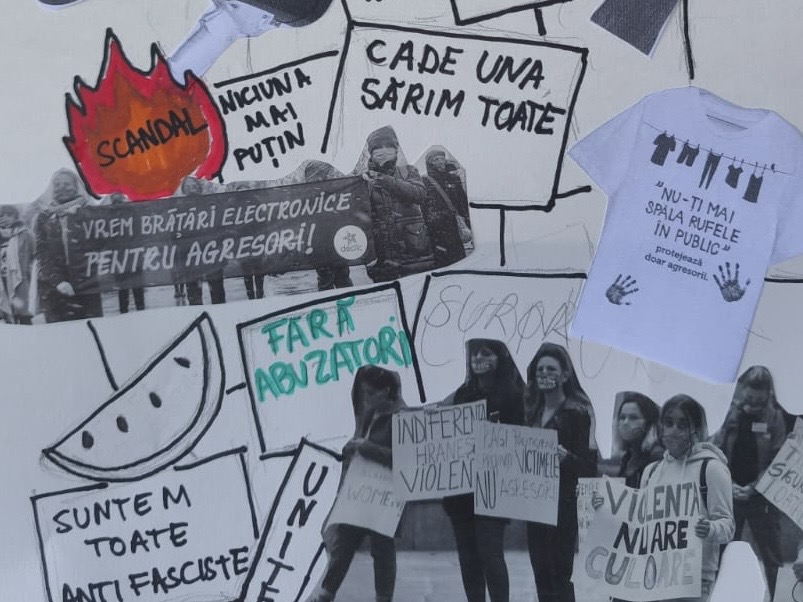 SCANDAL
NICIUNA
MAI
PUȚIN
CADE UNA
SĂRIM TOATE
VREM BRĂȚĂRI ELECTRONICE
PENTRU AGRESORI!
declic
"NU-ȚI MAI
SPĂLA RUFELE
ÎN PUBLIC"
protejează
doar agresorii.
FĂRĂ
ABUZATORI
INDIFERENȚ
HRANEȘ
VIOLEN
VICTIMELE
NU AGRESORII
WOMEN
VIOLENȚA
NU ARE
CULOARE
SUNTEM
TOATE
ANTIFASCISTE
UNITE